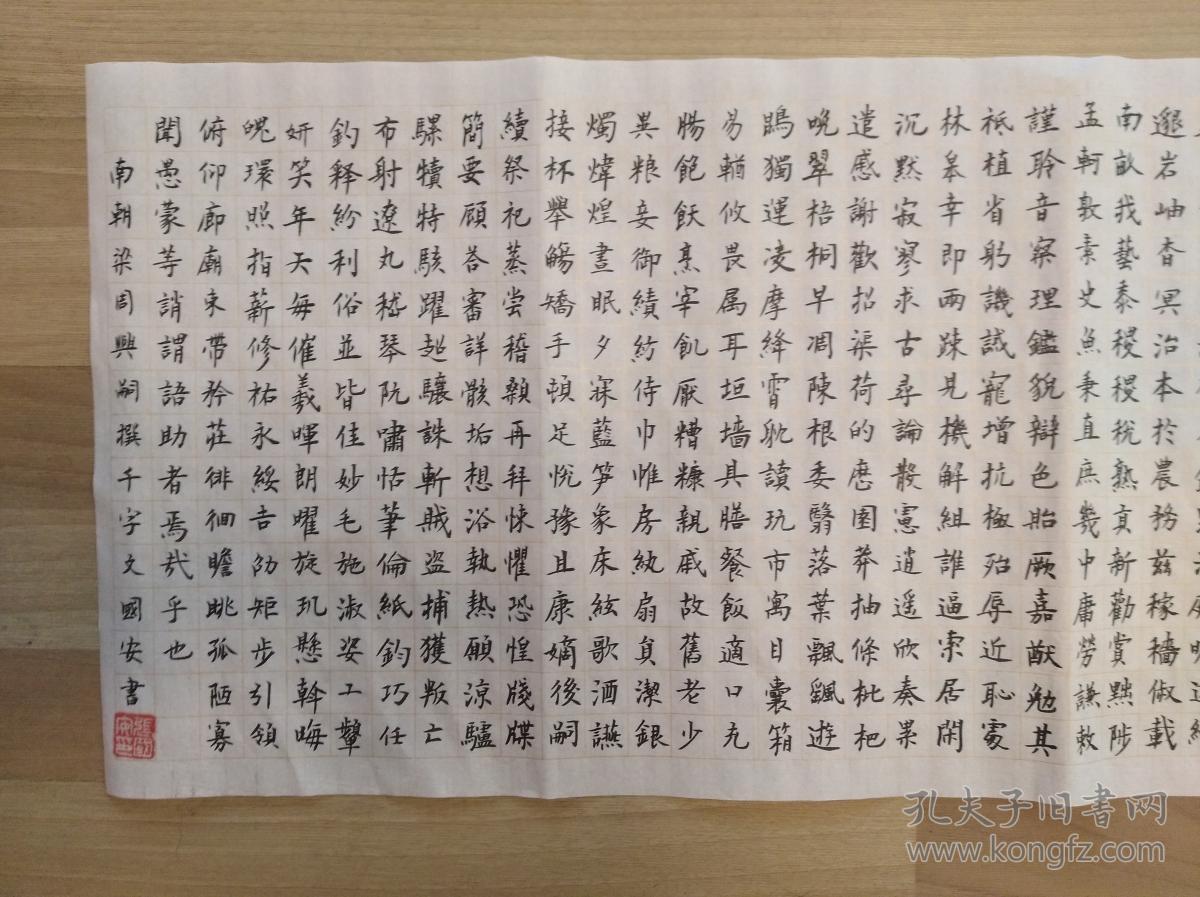 邈岩岫杳冥治本於農務茲稼穡俶載
南畝我藝黍稷稷稅熟貢新勸賞黜陟
孟軻敦素史魚秉直庶幾中庸勞謙敕
謹聆音察理鑑貌辯色胎厥嘉猷勉其
祗植省躬譏誡寵增抗極殆辱近恥
林皋幸即兩疎見機解組誰逼索居閑
沉默寂寥求古尋論散慮逍遙欣奏累
遣慼謝歡招渠荷的歷園莽抽條枇杷
晚翠梧桐早凋陳根委翳落葉飄颻遊
鵾獨運凌摩絳霄耽讀玩市寓目囊箱
易輶攸畏属耳垣墙具膳餐飯適口充
腸飽飫烹宰飢厭糟糠親戚故舊老少
異粮妾御績紡侍巾帷房紈扇員潔銀
燭煒煌晝眠夕寐藍笋象床絃歌酒讌
接杯舉觴矯手頓足悅豫且康嫡後嗣
續祭祀蒸嘗稽顙再拜悚懼恐惶牋牒
簡要顧答審詳骸垢想浴執熱願涼驢
騾犢特駭躍超驤誅斬賊盜捕獲叛亡
布射遼丸嵇琴阮嘯恬筆倫紙鈞巧任
釣释紛利俗並皆佳妙毛施淑姿工顰
妍笑年矢每催羲暉朗曜旋璣懸斡晦
魄環照指薪修祐永綏吉劭矩步引領
俯仰廊廟束帶矜莊徘徊瞻眺孤陋寡
聞愚蒙等誚謂語助者焉哉乎也
南朝梁周興嗣撰千字文國安書
孔夫子旧书网
www.kongfz.com